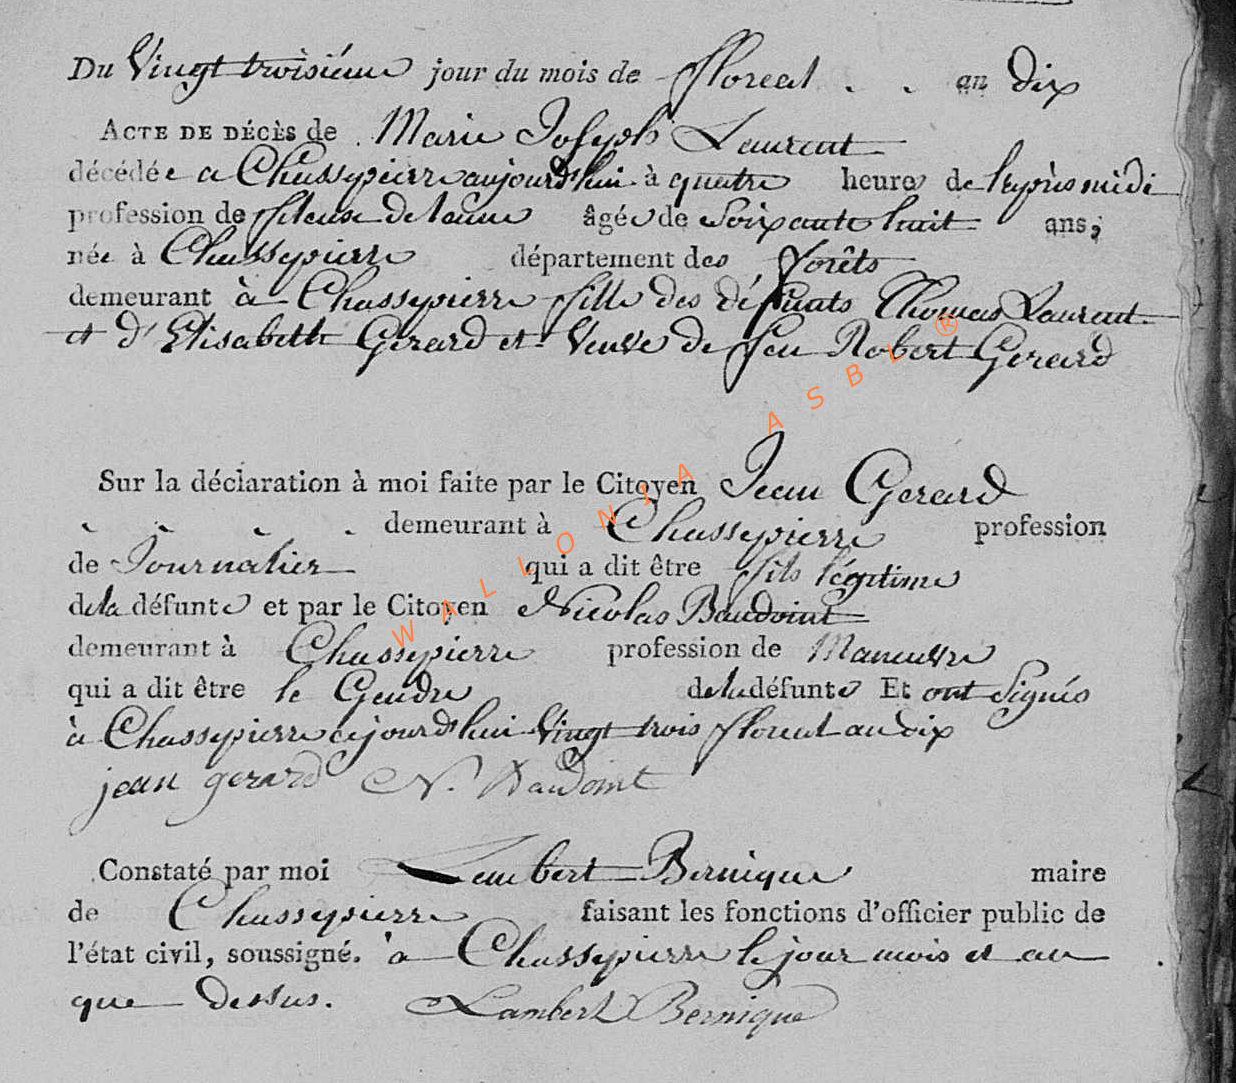 Du Vingt troisième jour du mois de floreal . . an dix
ACTE DE DÉCÈS de Marie Joseph Laurent
décédée a Chassepierre aujourd'hui à quatre heures de l'aprèsmidi
profession de fileuse de laine âgée de Soixante huit ans,
née à Chassepierre département des forêts
demeurant à Chassepierre fille des défunts Thomas Laurent
et d'Elisabeth Gerard et Veuve de feu Robert Gerard
Sur la déclaration à moi faite par le Citoyen Jean Gerard
demeurant à Chassepierre profession
de Journalier qui a dit être fils légitime
de la défunte et par le Citoyen Nicolas Baudoint
demeurant à Chassepierre profession de Manœuvre
qui a dit être le Gendre de la défunte Et ont Signés
à Chassepierre cejourd'hui Vingt trois floreal an dix
jean gerard N. Baudoint
Constaté par moi Lambert Bernique maire
de Chassepierre faisant les fonctions d'officier public de
l'état civil, soussigné. à Chassepierre le jour mois et an
que dessus. Lambert Bernique
WALLONIA ASBL ®